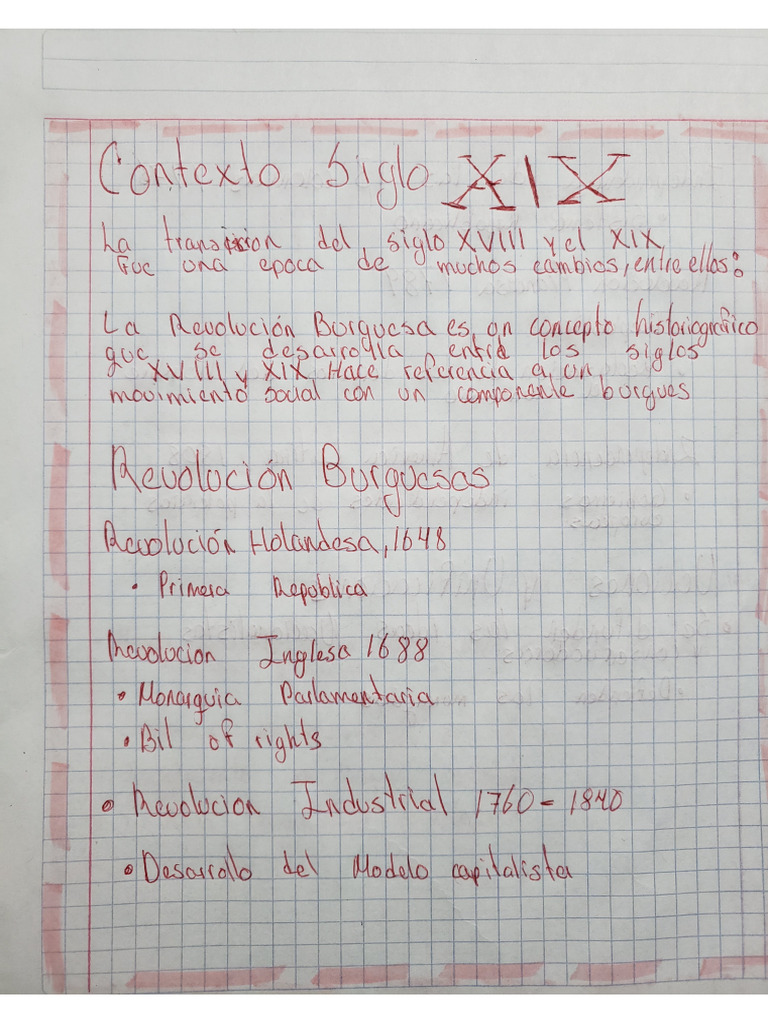 Contexto Siglo XIX
La transicion del siglo XVIII y el XIX
Fue una epoca de muchos cambios, entre ellos:
La Revolución Burguesa es un concepto historiografico
que se desarrolla entre los siglos
XVIII y XIX. Hace referencia a un
movimiento social con un componente burgues
Revolución Burguesas
Revolución Holandesa, 1648
• Primera Republica
Revolucion Inglesa 1688
• Monarquia Parlamentaria
• Bil of rights
• Revolucion Industrial 1760 - 1840
• Desarrollo del Modelo capitalista